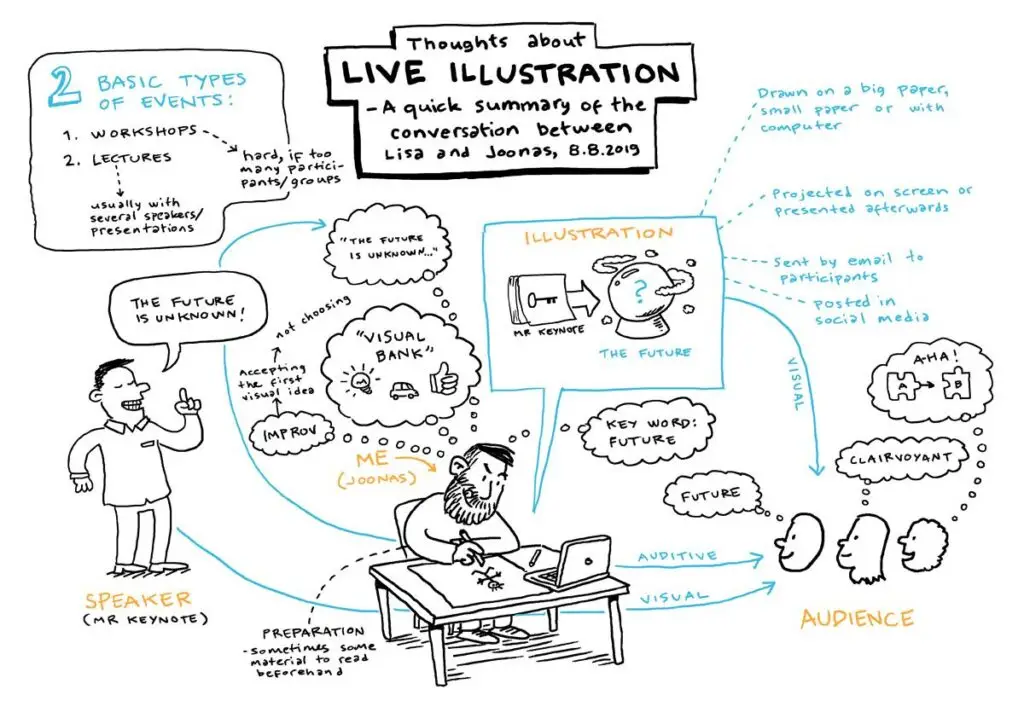 Thoughts about
LIVE ILLUSTRATION
- A quick summary of the
conversation between
Lisa and Joonas, 8.8.2019
2 BASIC TYPES
OF EVENTS:
1. WORKSHOPS
2. LECTURES
hard, if too
many partici-
pants/groups
usually with
several speakers/
presentations
Drawn on a big paper,
small paper or with
computer
Projected on screen or
presented afterwards
Sent by email to
participants
posted in
social media
ILLUSTRATION
MR KEYNOTE
?
THE FUTURE
"THE FUTURE
IS UNKNOWN..."
THE FUTURE
IS UNKNOWN!
not choosing
Accepting
the first
visual idea
IMPROV
"VISUAL
BANK"
KEY WORD:
FUTURE
ME
(JOONAS)
VISUAL
AHA!
A
B
CLAIRVOYANT
FUTURE
AUDITIVE
VISUAL
SPEAKER
(MR KEYNOTE)
AUDIENCE
PREPARATION
- sometimes some
material to read
beforehand